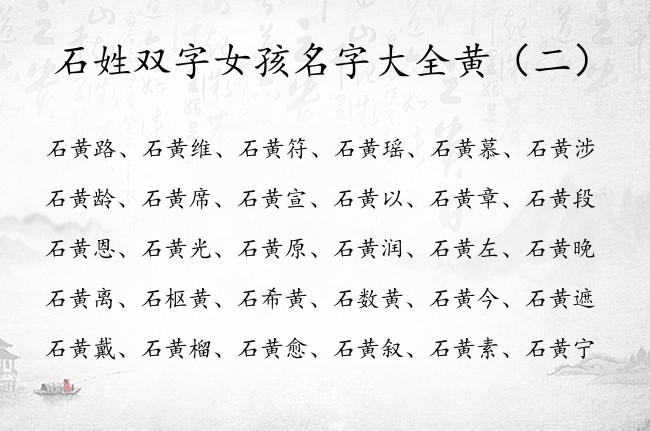 石姓双字女孩名字大全黄（二）
石黄路、石黄维、石黄符、石黄瑶、石黄慕、石黄涉
石黄龄、石黄席、石黄宣、石黄以、石黄章、石黄段
石黄恩、石黄光、石黄原、石黄润、石黄左、石黄晚
石黄离、石枢黄、石希黄、石数黄、石黄今、石黄遮
石黄戴、石黄榴、石黄愈、石黄叙、石黄素、石黄宁